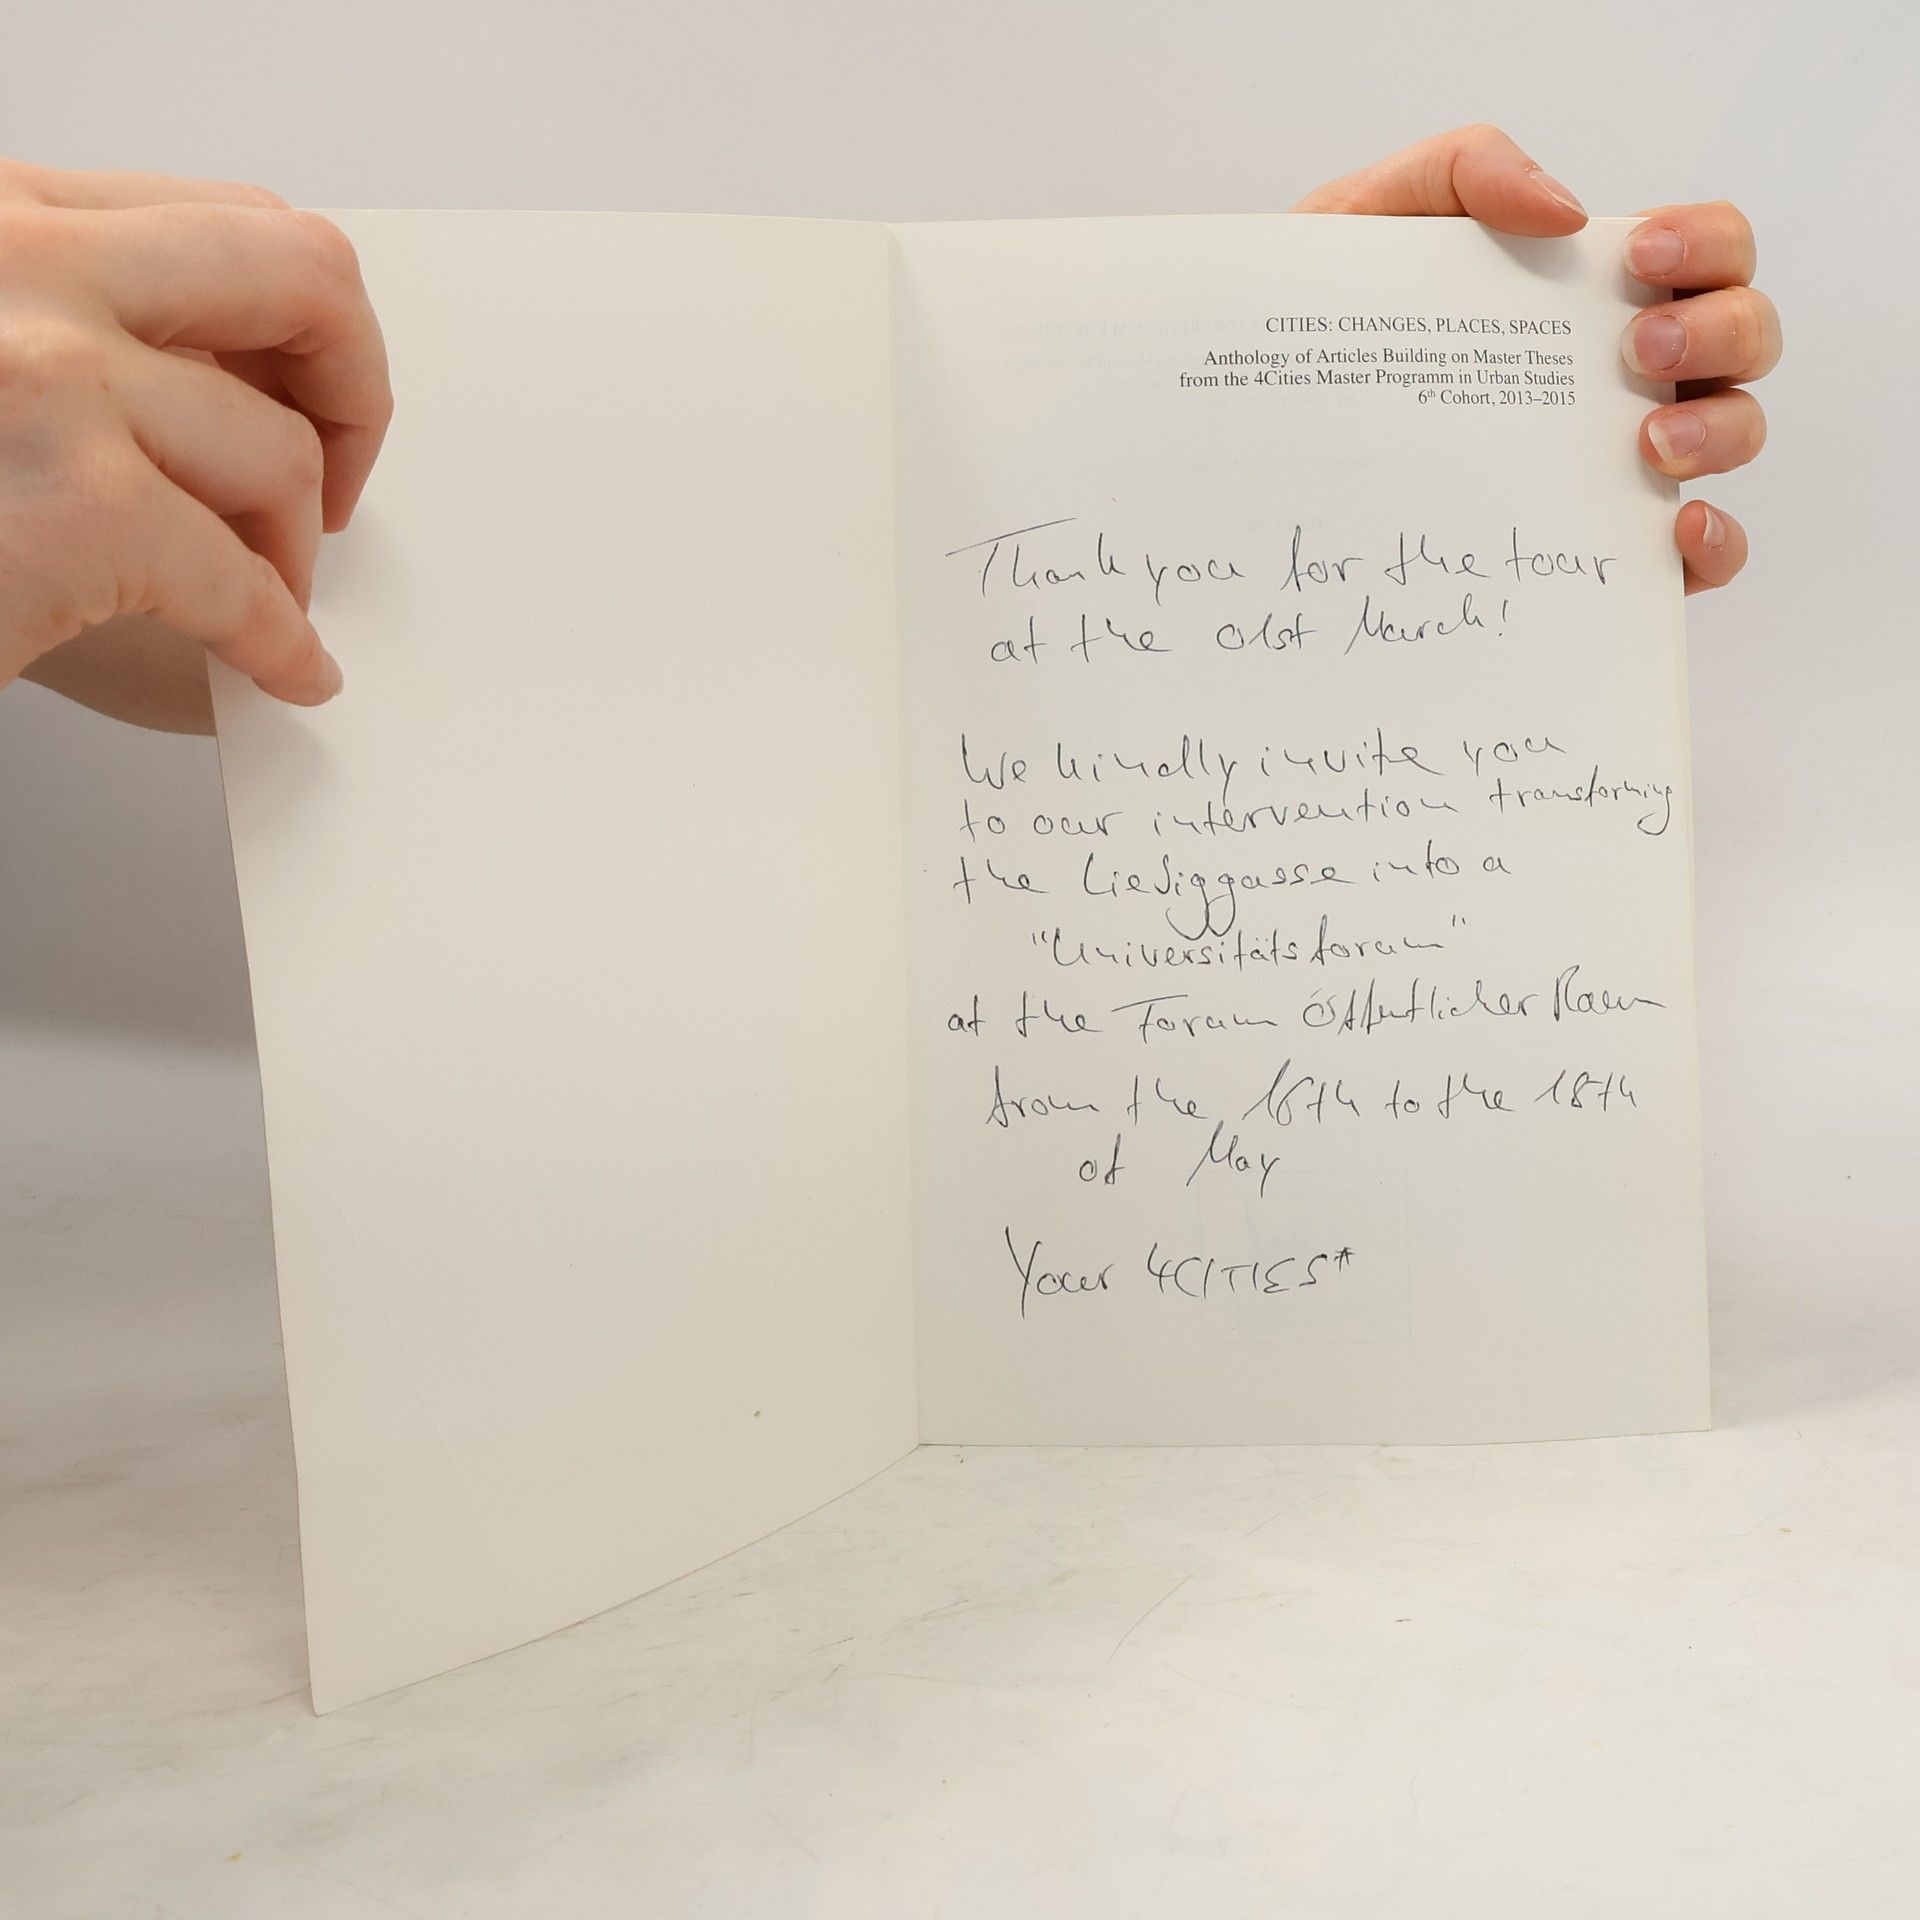 CITIES: CHANGES, PLACES, SPACES
Anthology of Articles Building on Master Theses
from the 4Cities Master Programm in Urban Studies
6th Cohort, 2013–2015
Thank you for the tour
at the 01st March!
We kindly invite you
to our intervention transforming
the Liebiggasse into a
"Universitätsforum"
at the Forum Öffentlicher Raum
from the 16th to the 18th
of May
Your 4CITIES*